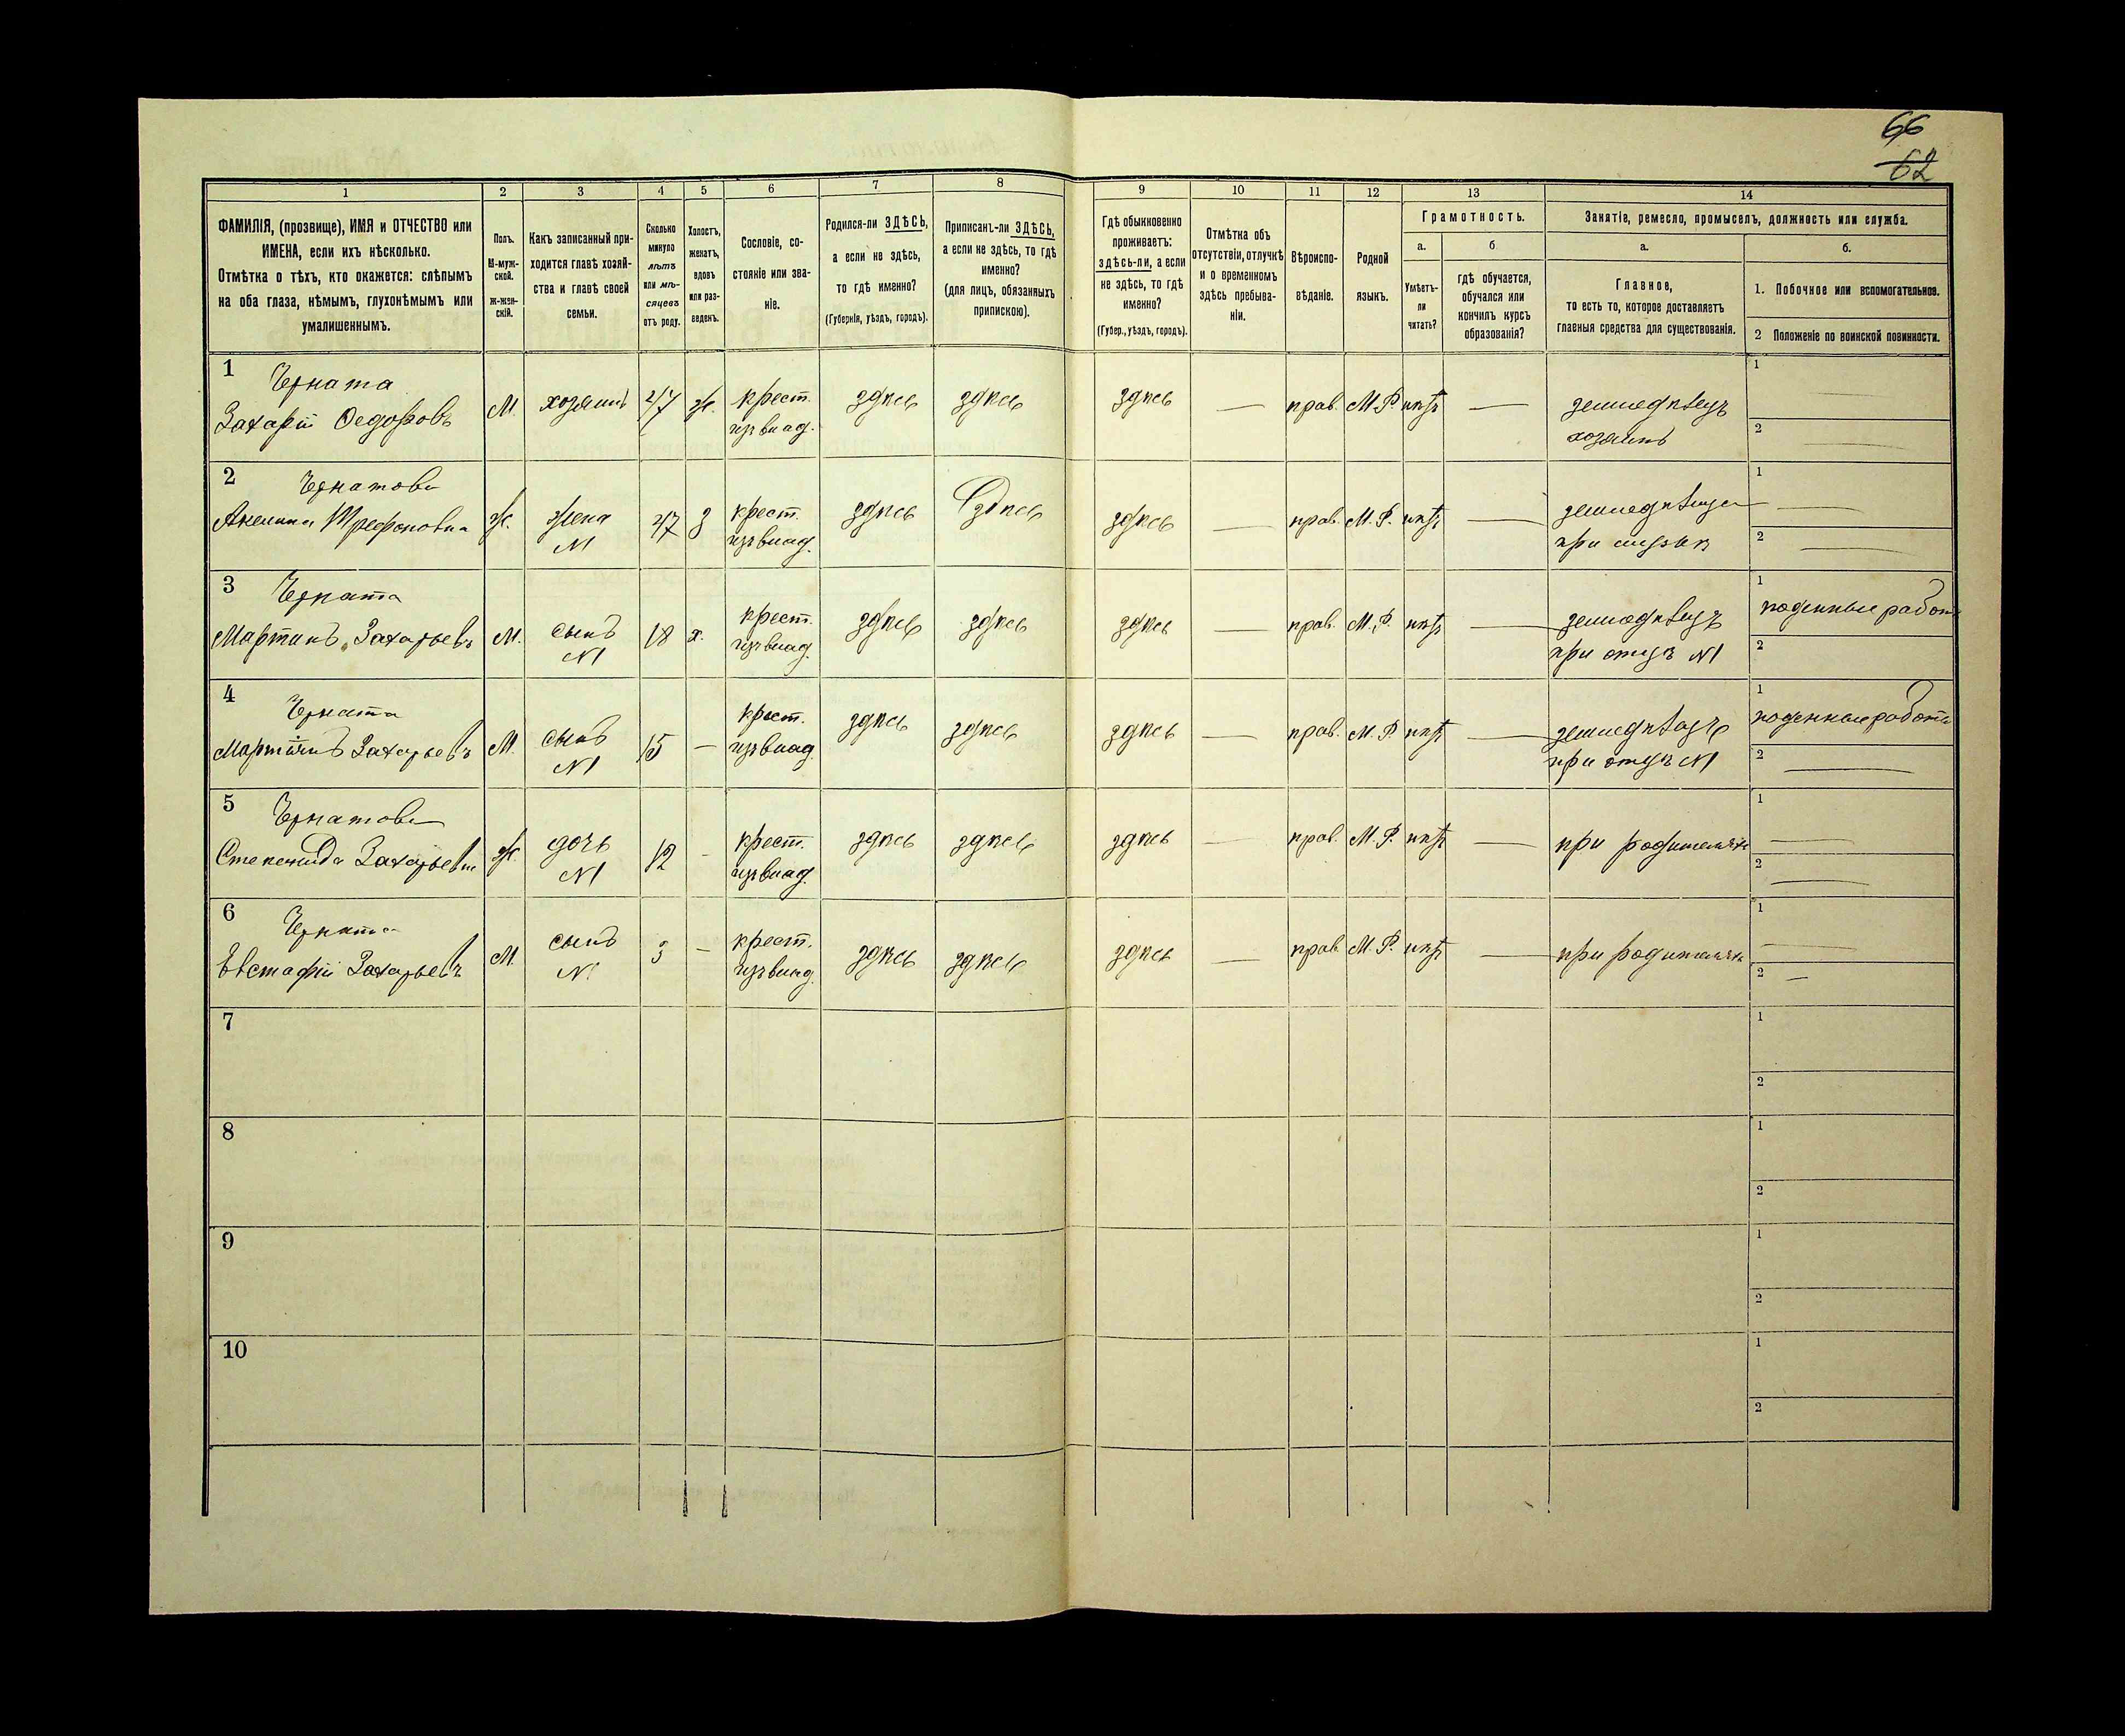 66
62
1
2
3
4
5
6
7
8
9
10
11
12
13
14
ФАМИЛІЯ, (прозвище), ИМЯ и ОТЧЕСТВО или
ИМЕНА, если ихъ нѣсколько.
Отмѣтка о тѣхъ, кто окажется: слѣпымъ
на оба глаза, нѣмымъ, глухонѣмымъ или
умалишеннымъ.
Полъ.
М-муж-
ской.
ж-жен-
скій.
Какъ записанный при-
ходится главѣ хозяй-
ства и главѣ своей
семьи.
Сколько
минуло
лѣтъ
или мѣ-
сяцевъ
отъ роду.
Холостъ,
женатъ,
вдовъ
или раз-
веденъ.
Сословіе, со-
стояніе или зва-
ніе.
Родился-ли ЗДѢСЬ,
а если не здѣсь,
то гдѣ именно?
(Губернія, уѣздъ, городъ).
Приписанъ-ли ЗДѢСЬ,
а если не здѣсь, то гдѣ
именно?
(для лицъ, обязанныхъ
припискою).
Гдѣ обыкновенно
проживаетъ:
здѣсь-ли, а если
не здѣсь, то гдѣ
именно?
(Губер., уѣздъ, городъ).
Отмѣтка объ
отсутствіи, отлучкѣ
и о временномъ
здѣсь пребыва-
ніи.
Вѣроиспо-
вѣданіе.
Родной
языкъ.
Грамотность.
а.
Умѣетъ-
ли
читать?
б
гдѣ обучается,
обучался или
кончилъ курсъ
образованія?
Занятіе, ремесло, промыселъ, должность или служба.
а.
Главное,
то есть то, которое доставляетъ
главныя средства для существованія.
б.
1. Побочное или вспомогательное.
2 Положеніе по воинской повинности.
1
Черната
Захарій Ѳедоровъ
М.
хозяинъ
47
ж.
крест.
изъ влад.
здѣсь
здѣсь
здѣсь
—
прав.
М.Р.
нѣтъ
—
земледѣлецъ
хозяинъ
1
2
—
2
Чернатова
Трефоновна
ж.
жена
N1
47
З
крест.
изъ влад.
здѣсь
Здѣсь
здѣсь
—
прав.
М.Р.
нѣтъ
—
при мужѣ
1
—
2
—
3
Черната
Мартинъ Захарьевъ
М.
сынъ
N1
18
х.
крест.
изъ влад.
здѣсь
здѣсь
здѣсь
—
прав.
М.Р.
нѣтъ
—
земледѣлецъ
при отцѣ N1
1
поденные работы
2
4
Черната
Захарьевъ
М.
сынъ
N1
15
—
крест.
изъ влад.
здѣсь
здѣсь
здѣсь
—
прав.
М.Р.
нѣтъ
—
земледѣлецъ
при отцѣ N1
1
поденные работы
2
—
5
Чернатова
Захарьевна
ж.
дочь
N1
12
—
крест.
изъ влад.
здѣсь
здѣсь
здѣсь
—
прав.
М.Р.
нѣтъ
—
при родителяхъ
1
—
2
—
6
Черната
Евстафій Захарьевъ
М.
сынъ
N1
3
—
крест.
изъ влад.
здѣсь
здѣсь
здѣсь
—
прав.
М.Р.
нѣтъ
—
при родителяхъ
1
—
2
—
7
1
2
8
1
2
9
1
2
10
1
2